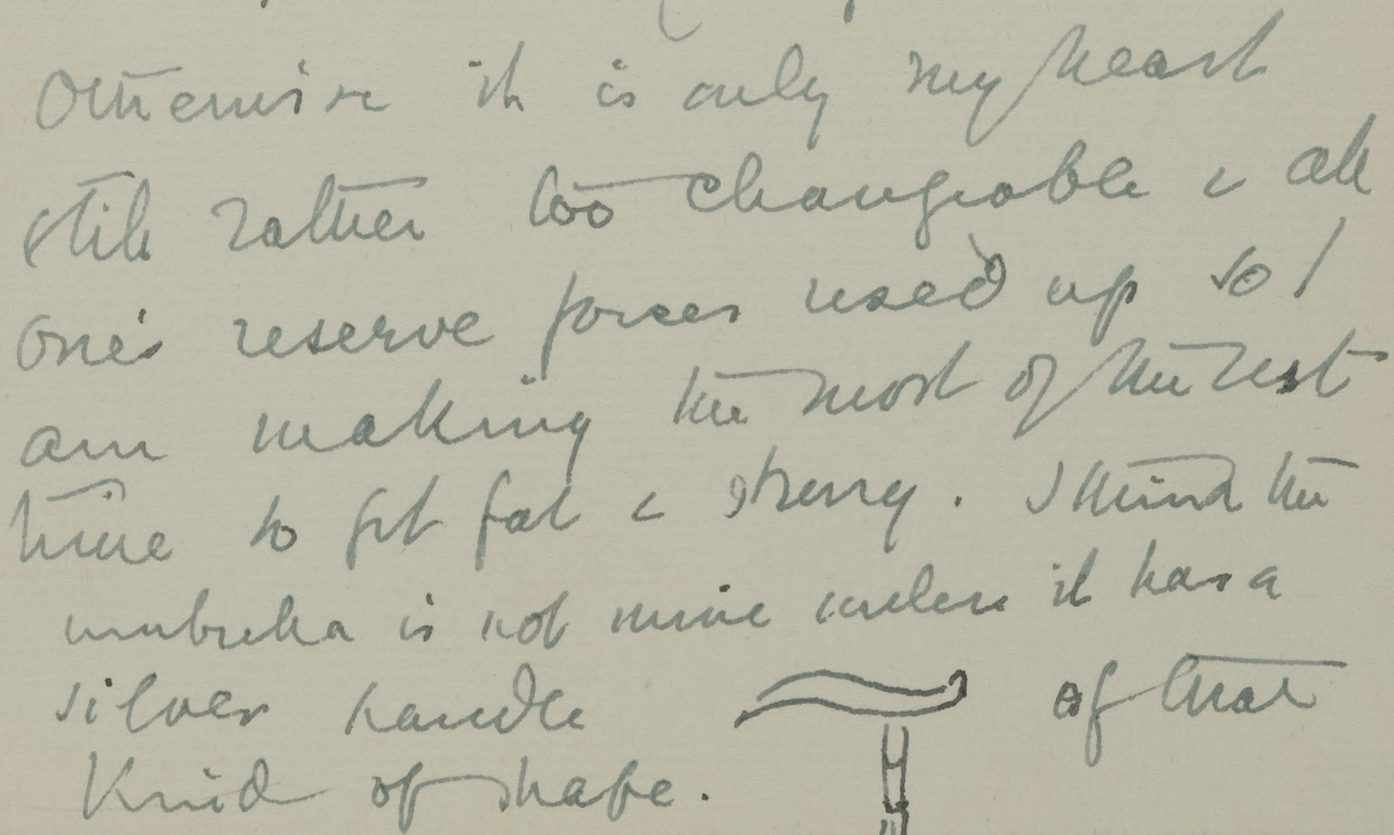 Otherwise it is only my heart
still rather too changeable & all
one's reserve forces used up so I
am making the most of the rest
time to get fat & strong. I think the
umbrella is not mine unless it has a
silver handle of that
kind of shape.